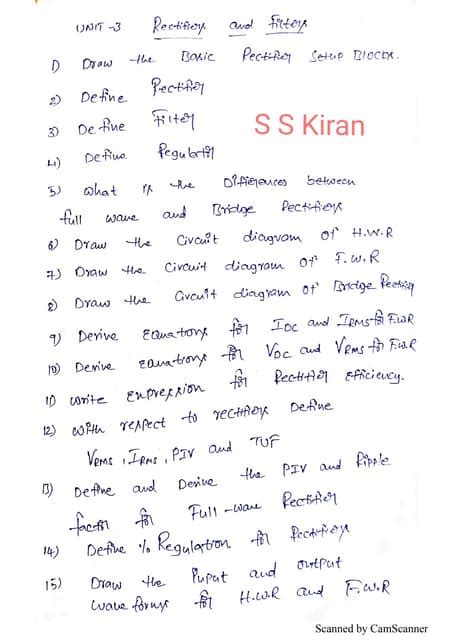 UNIT-3 Rectifiers and Filters
1) Draw the Basic Rectifier Setup Blocks.
2) Define Rectifier
3) Define Filter
S S Kiran
4) Define Regulator
5) What is the Differences between
full wave and Bridge Rectifiers
6) Draw the Circuit diagram of H.W.R
7) Draw the Circuit diagram of F.W.R
8) Draw the Circuit diagram of Bridge Rectifier
9) Derive Equations for IDC and IRMS for F.W.R
10) Derive equations for VDC and VRMS for F.W.R
11) Write Expression for Rectifier Efficiency.
12) With respect to rectifiers Define
VRMS, IRMS, PIV and TUF
13) Define and Derive the PIV and Ripple
factor for Full-wave Rectifier
14) Define % Regulation for Rectifiers
15) Draw the Input and output
wave forms for H.W.R and F.W.R
Scanned by CamScanner